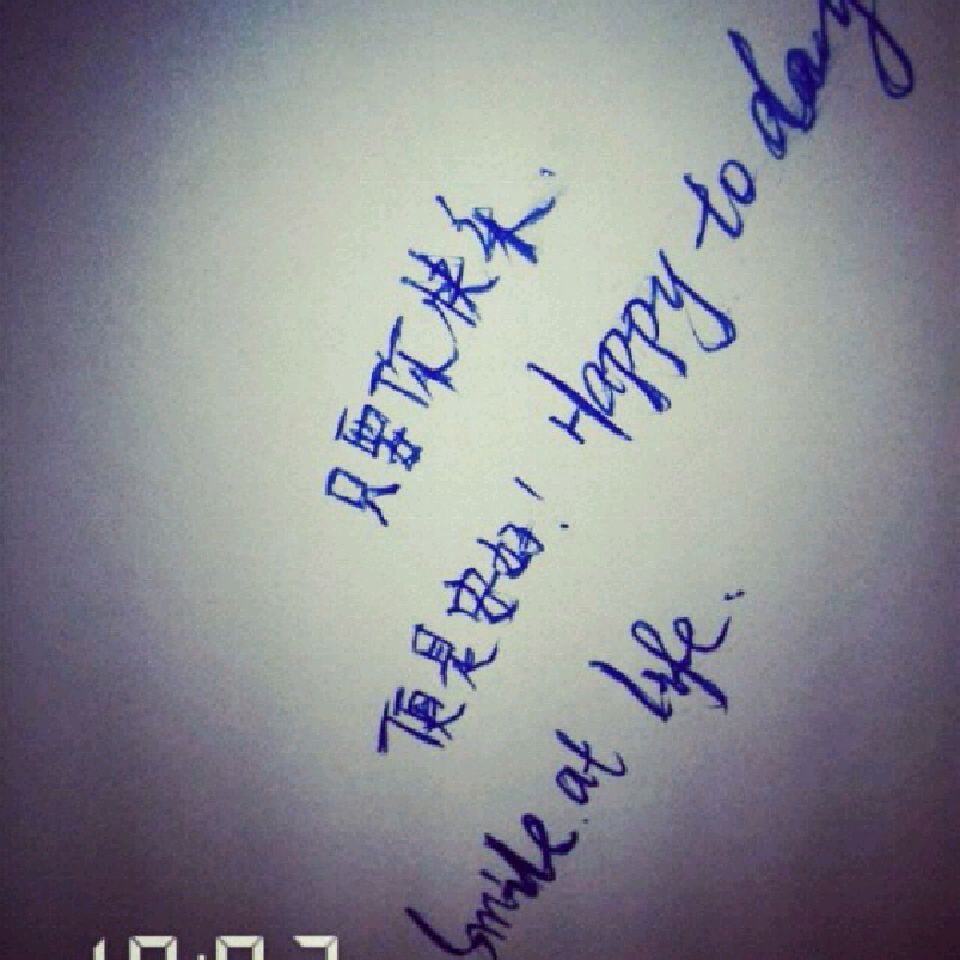 只要快乐.
是好!
Happy to day
Smile at life..